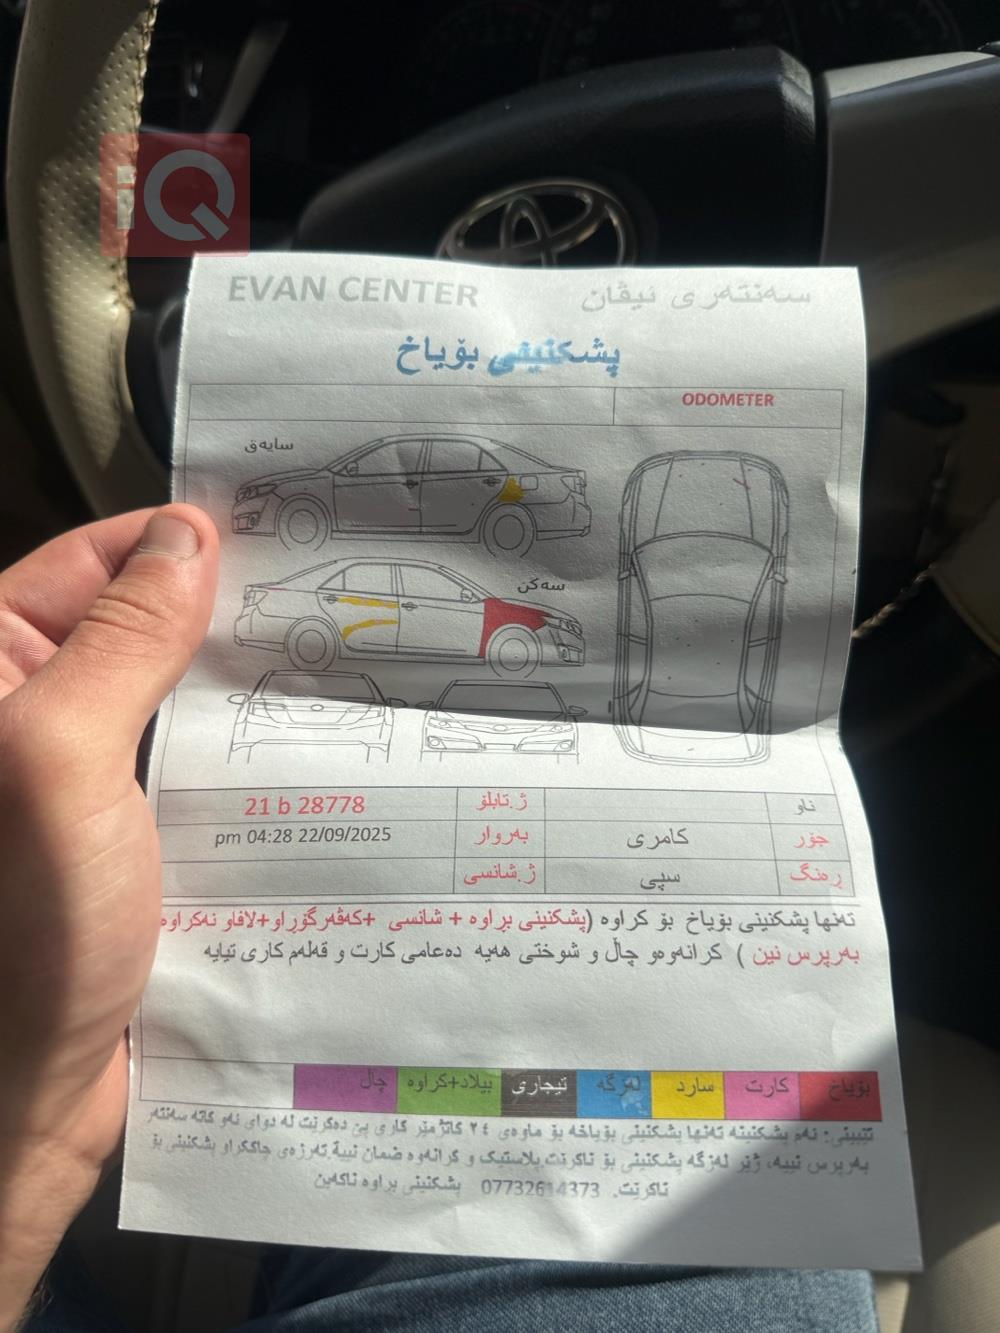 iQ
EVAN CENTER سەنتەری ئیڤان
پشکنینی بۆیاخ
ODOMETER
سایەق
سەکن
ناو ژ.تابلۆ 21 b 28778
جۆر کامری بەروار 22/09/2025 04:28 pm
ڕەنگ سپی ژ.شانسی
تەنها پشکنینی بۆیاخ بۆ کراوە (پشکنینی براوە + شانسی +کەڤەرگۆڕاو+لافاو نەکراوە
بەرپرس نین ) کرانەوەو چاڵ و شوختی هەیە دەعامی کارت و قەلەم کاری تیایە
بۆیاخ کارت سارد لەزگە تیجاری بیلاد+کراوە چاڵ
تێبینی: ئەم پشکنینە تەنها پشکنینی بۆیاخە بۆ ماوەی ٢٤ کاتژمێر کاری پێ دەکرێت لە دوای ئەو کاتە سەنتەر
بەرپرس نییە، ژێر لەزگە پشکنینی بۆ ناکرێت پلاستیک و کرانەوە ضمان نییة تەرزەی چاککراو پشکنینی بۆ
ناکرێت. 07732614373 پشکنینی براوە ناکەین